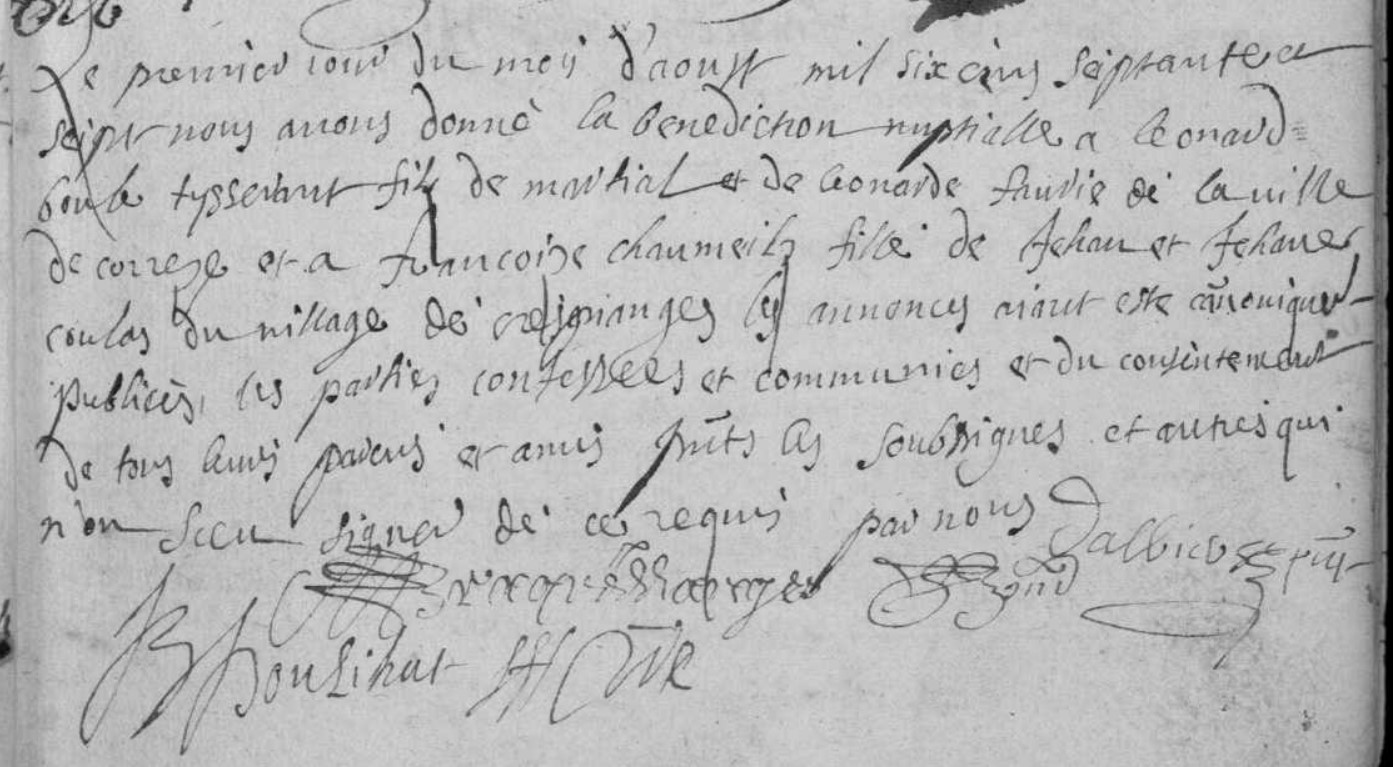 Le premier iour du mois d'aoust mil six cens septante et
seipt nous auons donné la benediction nuptialle a leonard
boule tysserant fils de martial et de leonarde faurie de la uille
de correze et a francoise chaumeils fille de Jehan et Jehane
coulas du uillage de les annonces aiant esté canoniquem̃t
publiées, les parties confessees et communiees et du consintement
de tous leurs parens et amis pñts les soubsignes et autres qui
n'on sceu signer de ce requis par nous
Dalbier